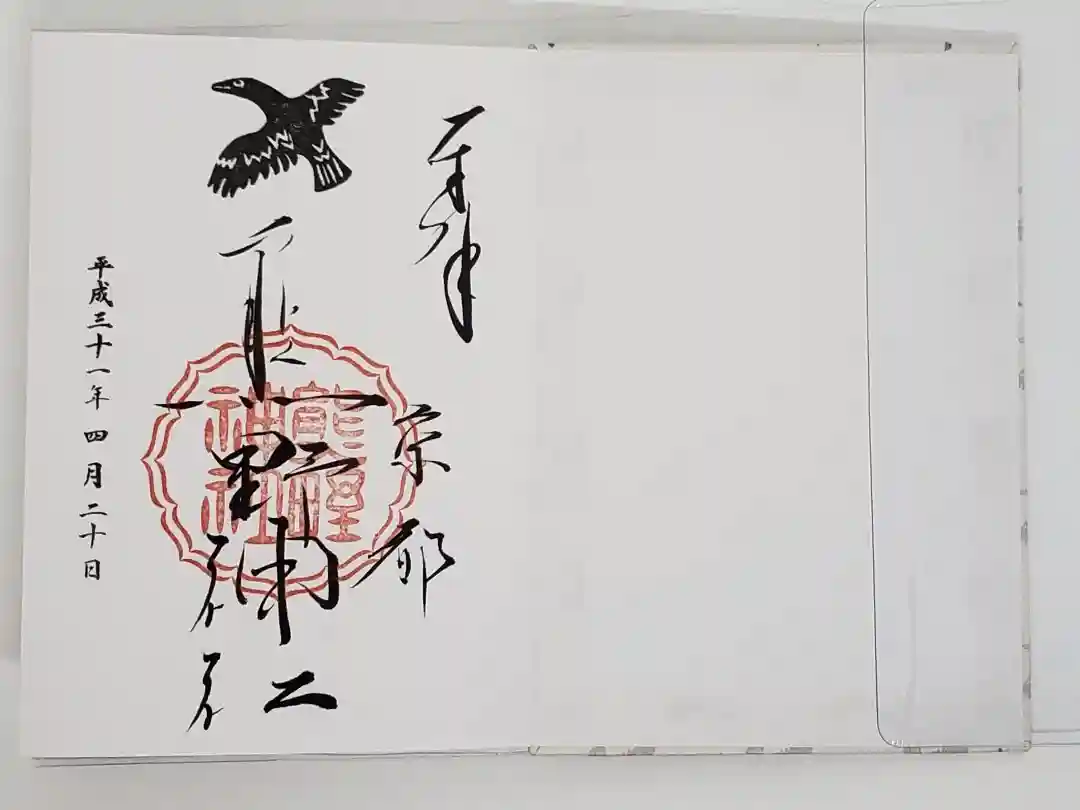 奉拝
京都
熊野神社
平成三十一年四月二十日
熊野神社